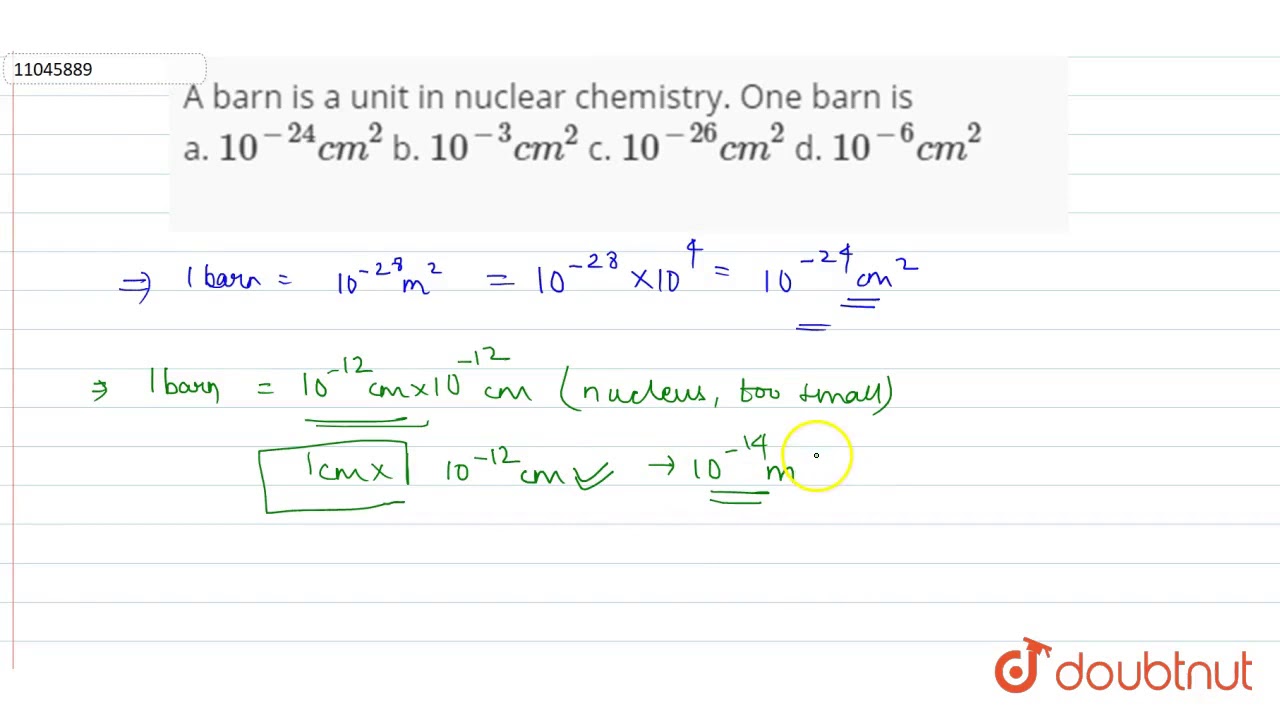 11045889
A barn is a unit in nuclear chemistry. One barn is
a. 10⁻²⁴cm² b. 10⁻³cm² c. 10⁻²⁶cm² d. 10⁻⁶cm²
⇒ 1 barn = 10⁻²⁸m² = 10⁻²⁸ × 10⁴ = 10⁻²⁴ cm²
⇒ 1 barn = 10⁻¹² cm × 10⁻¹² cm (nucleus, too small)
1cm × 10⁻¹² cm ✓ → 10⁻¹⁴ m
doubtnut